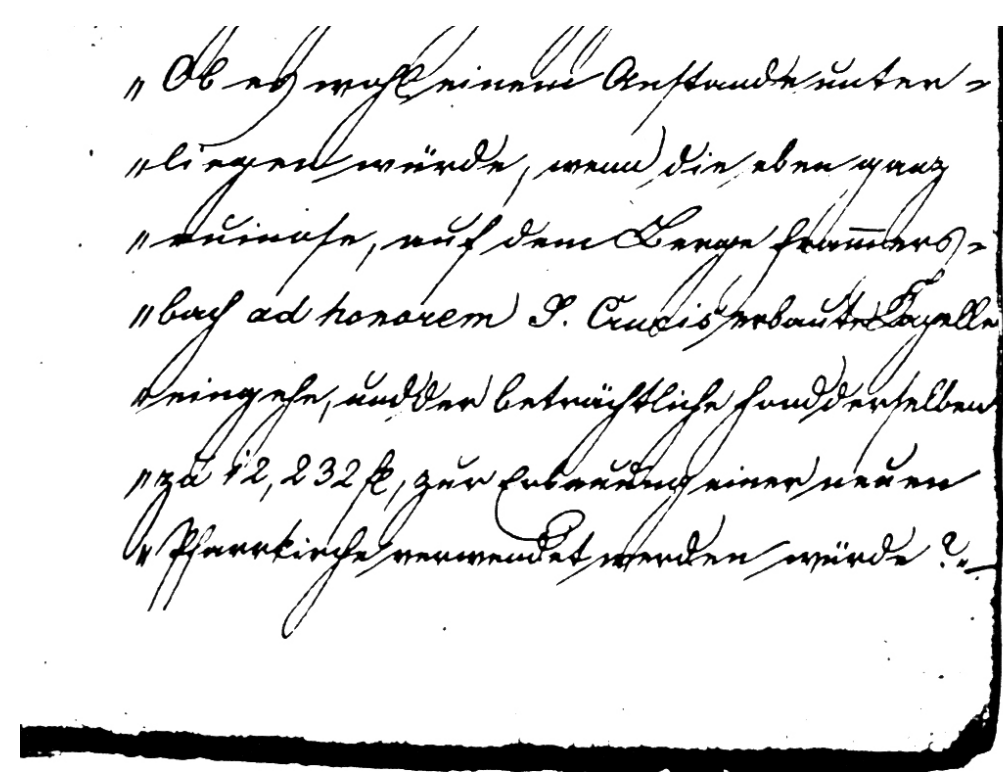 „Ob es wohl einem Anstande unter-
„liegen würde, wenn die eben ganz
„ruinose, auf dem Berge Frammers-
„bach ad honorem S. Crucis erbaute Kapelle
„eingehe, und der beträchtliche Fond derselben
„zu 12,232 fl, zur Erbauung einer neuen
„Pfarrkirche verwendet werden würde?“